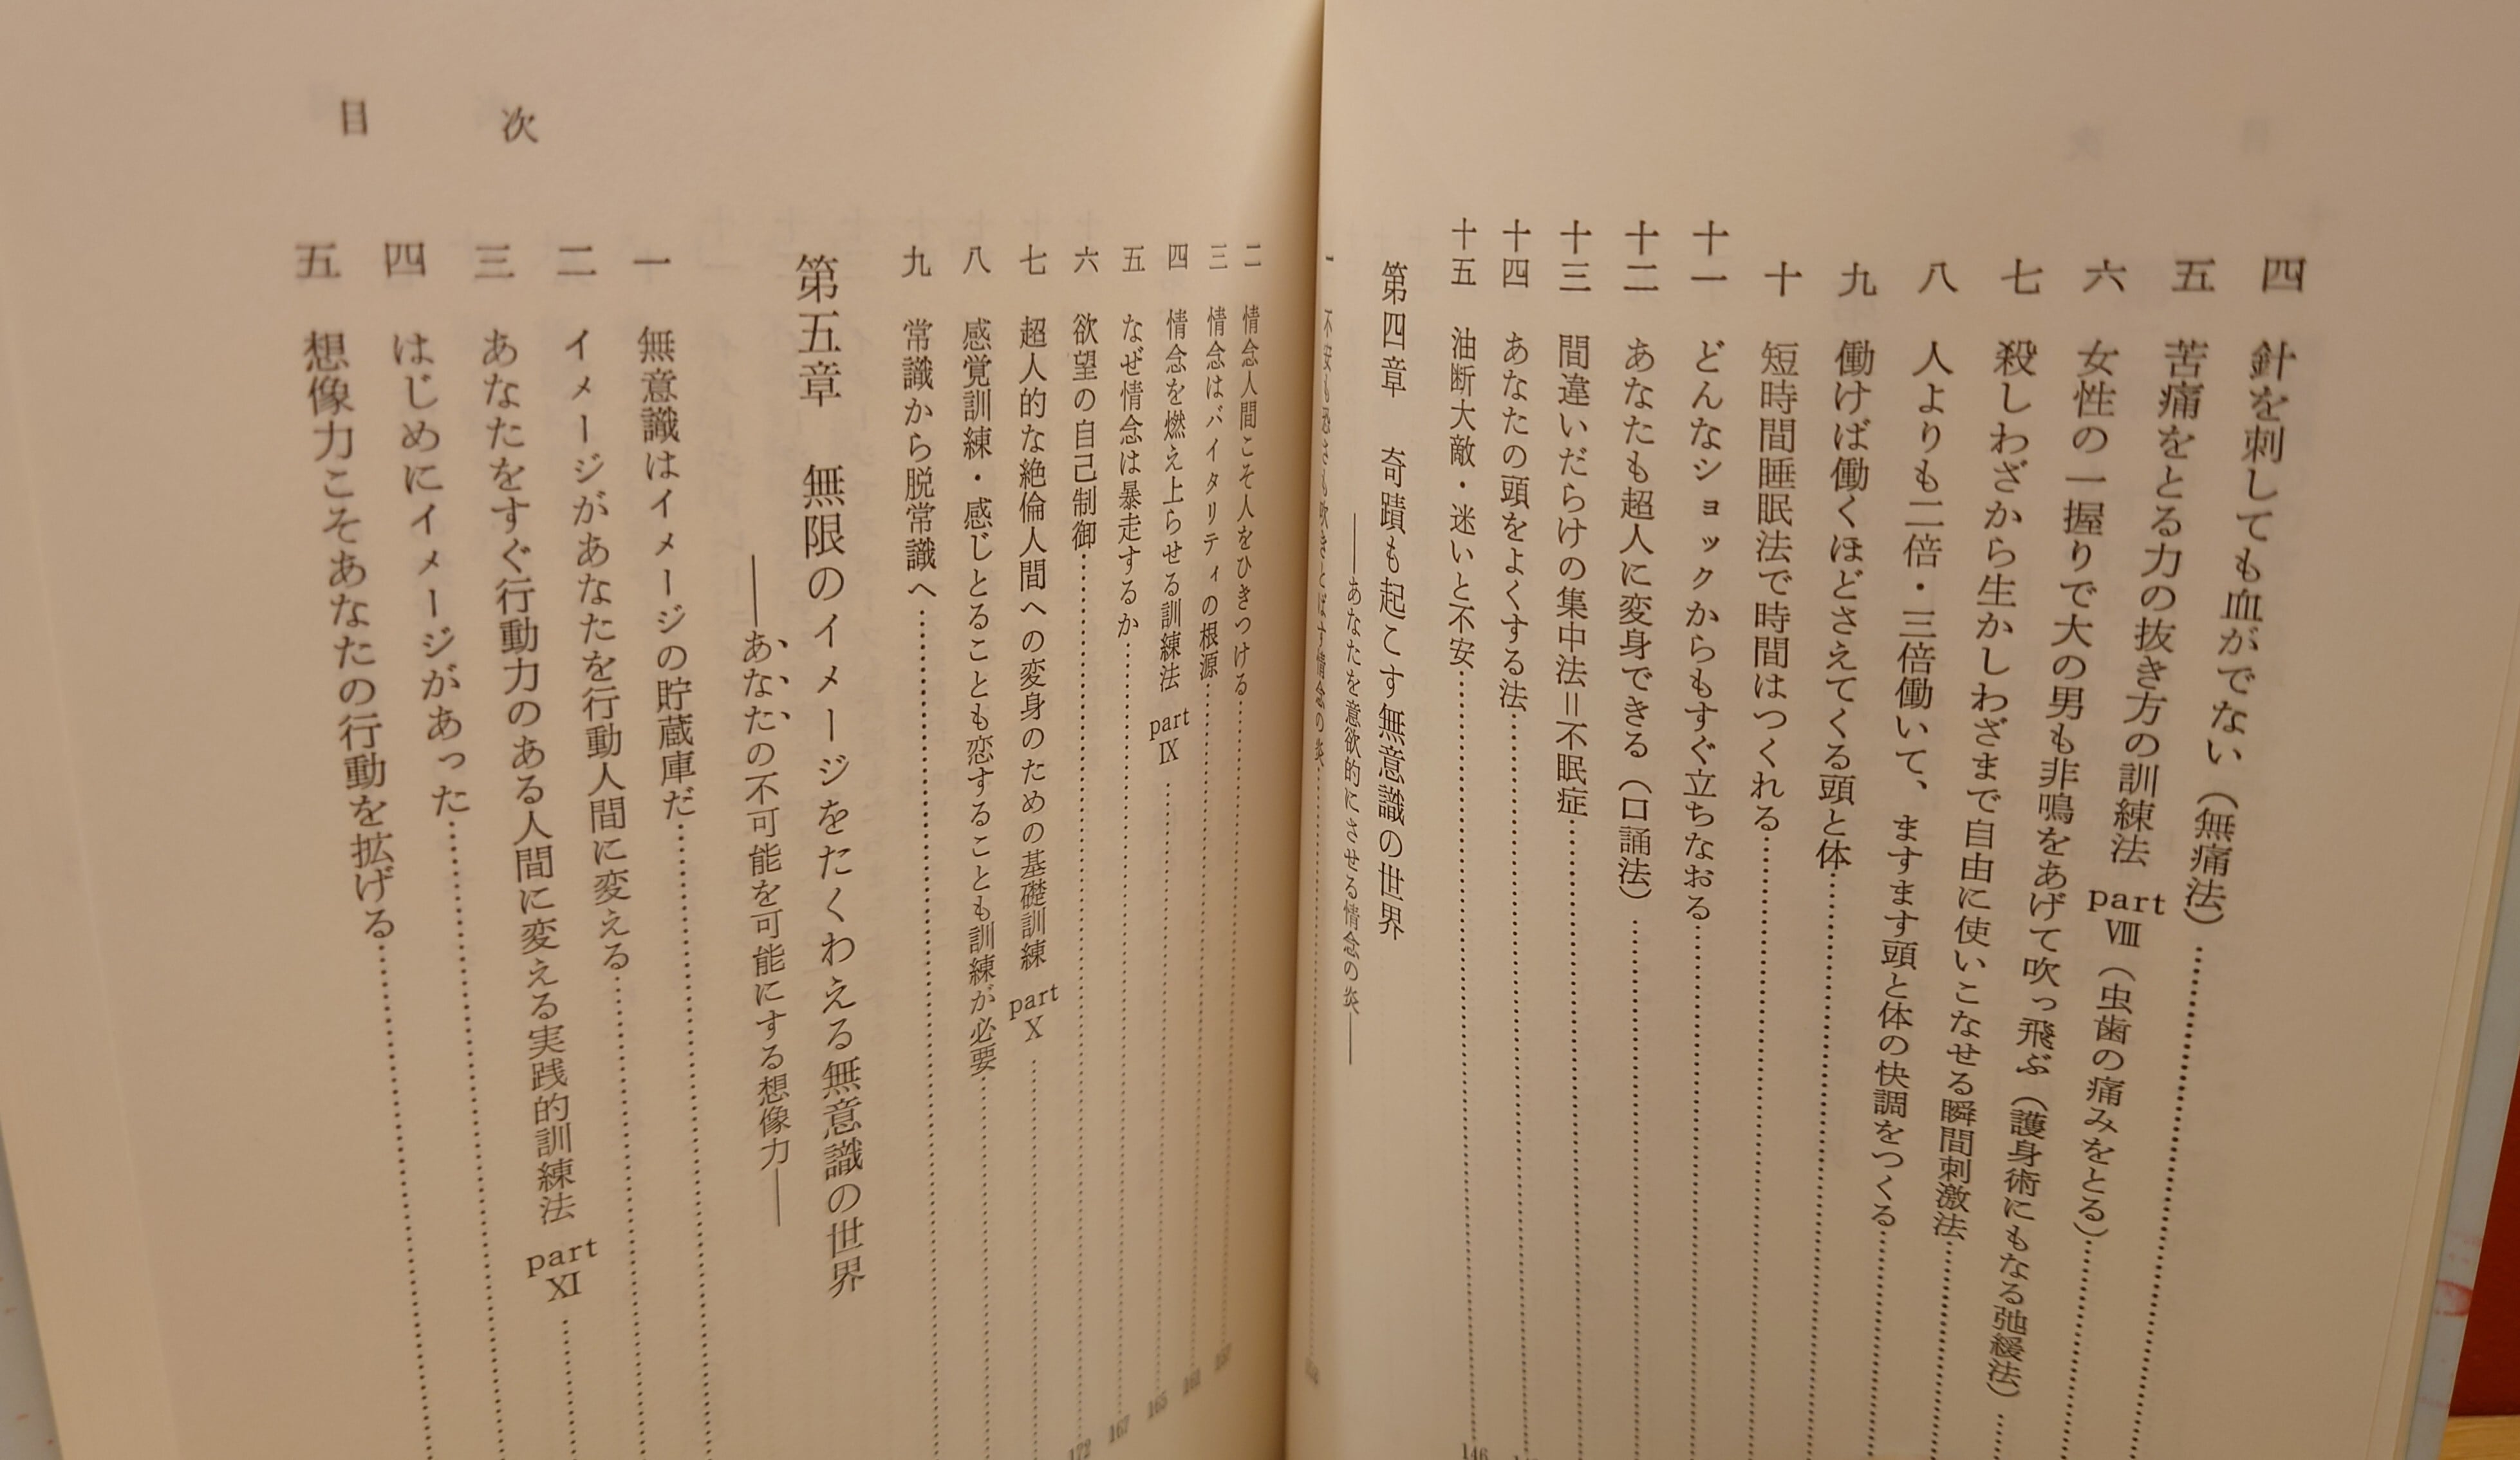 四 針を刺しても血がでない（無痛法）
五 苦痛をとる力の抜き方の訓練法 part Ⅷ（虫歯の痛みをとる）
六 女性の一握りで大の男も非鳴をあげて吹っ飛ぶ（護身術にもなる弛緩法）
七 殺しわざから生かしわざまで自由に使いこなせる瞬間刺激法
八 人よりも二倍・三倍働いて、ますます頭と体の快調をつくる
九 働けば働くほどさえてくる頭と体
十 短時間睡眠法で時間はつくれる
十一 どんなショックからもすぐ立ちなおる
十二 あなたも超人に変身できる（口誦法）
十三 間違いだらけの集中法＝不眠症
十四 あなたの頭をよくする法
十五 油断大敵・迷いと不安 146
第四章 奇蹟も起こす無意識の世界
――あなたを意欲的にさせる情念の炎――
一 不安も恐さも吹きとばす情念の炎
二 情念人間こそ人をひきつける 157
三 情念はバイタリティの根源 161
四 情念を燃え上らせる訓練法 part Ⅸ 165
五 なぜ情念は暴走するか 167
六 欲望の自己制御 172
七 超人的な絶倫人間への変身のための基礎訓練 part Ⅹ
八 感覚訓練・感じとることも恋することも訓練が必要
九 常識から脱常識へ
第五章 無限のイメージをたくわえる無意識の世界
――あなたの不可能を可能にする想像力――
一 無意識はイメージの貯蔵庫だ
二 イメージがあなたを行動人間に変える
三 あなたをすぐ行動力のある人間に変える実践的訓練法 part Ⅺ
四 はじめにイメージがあった
五 想像力こそあなたの行動を拡げる
目 次